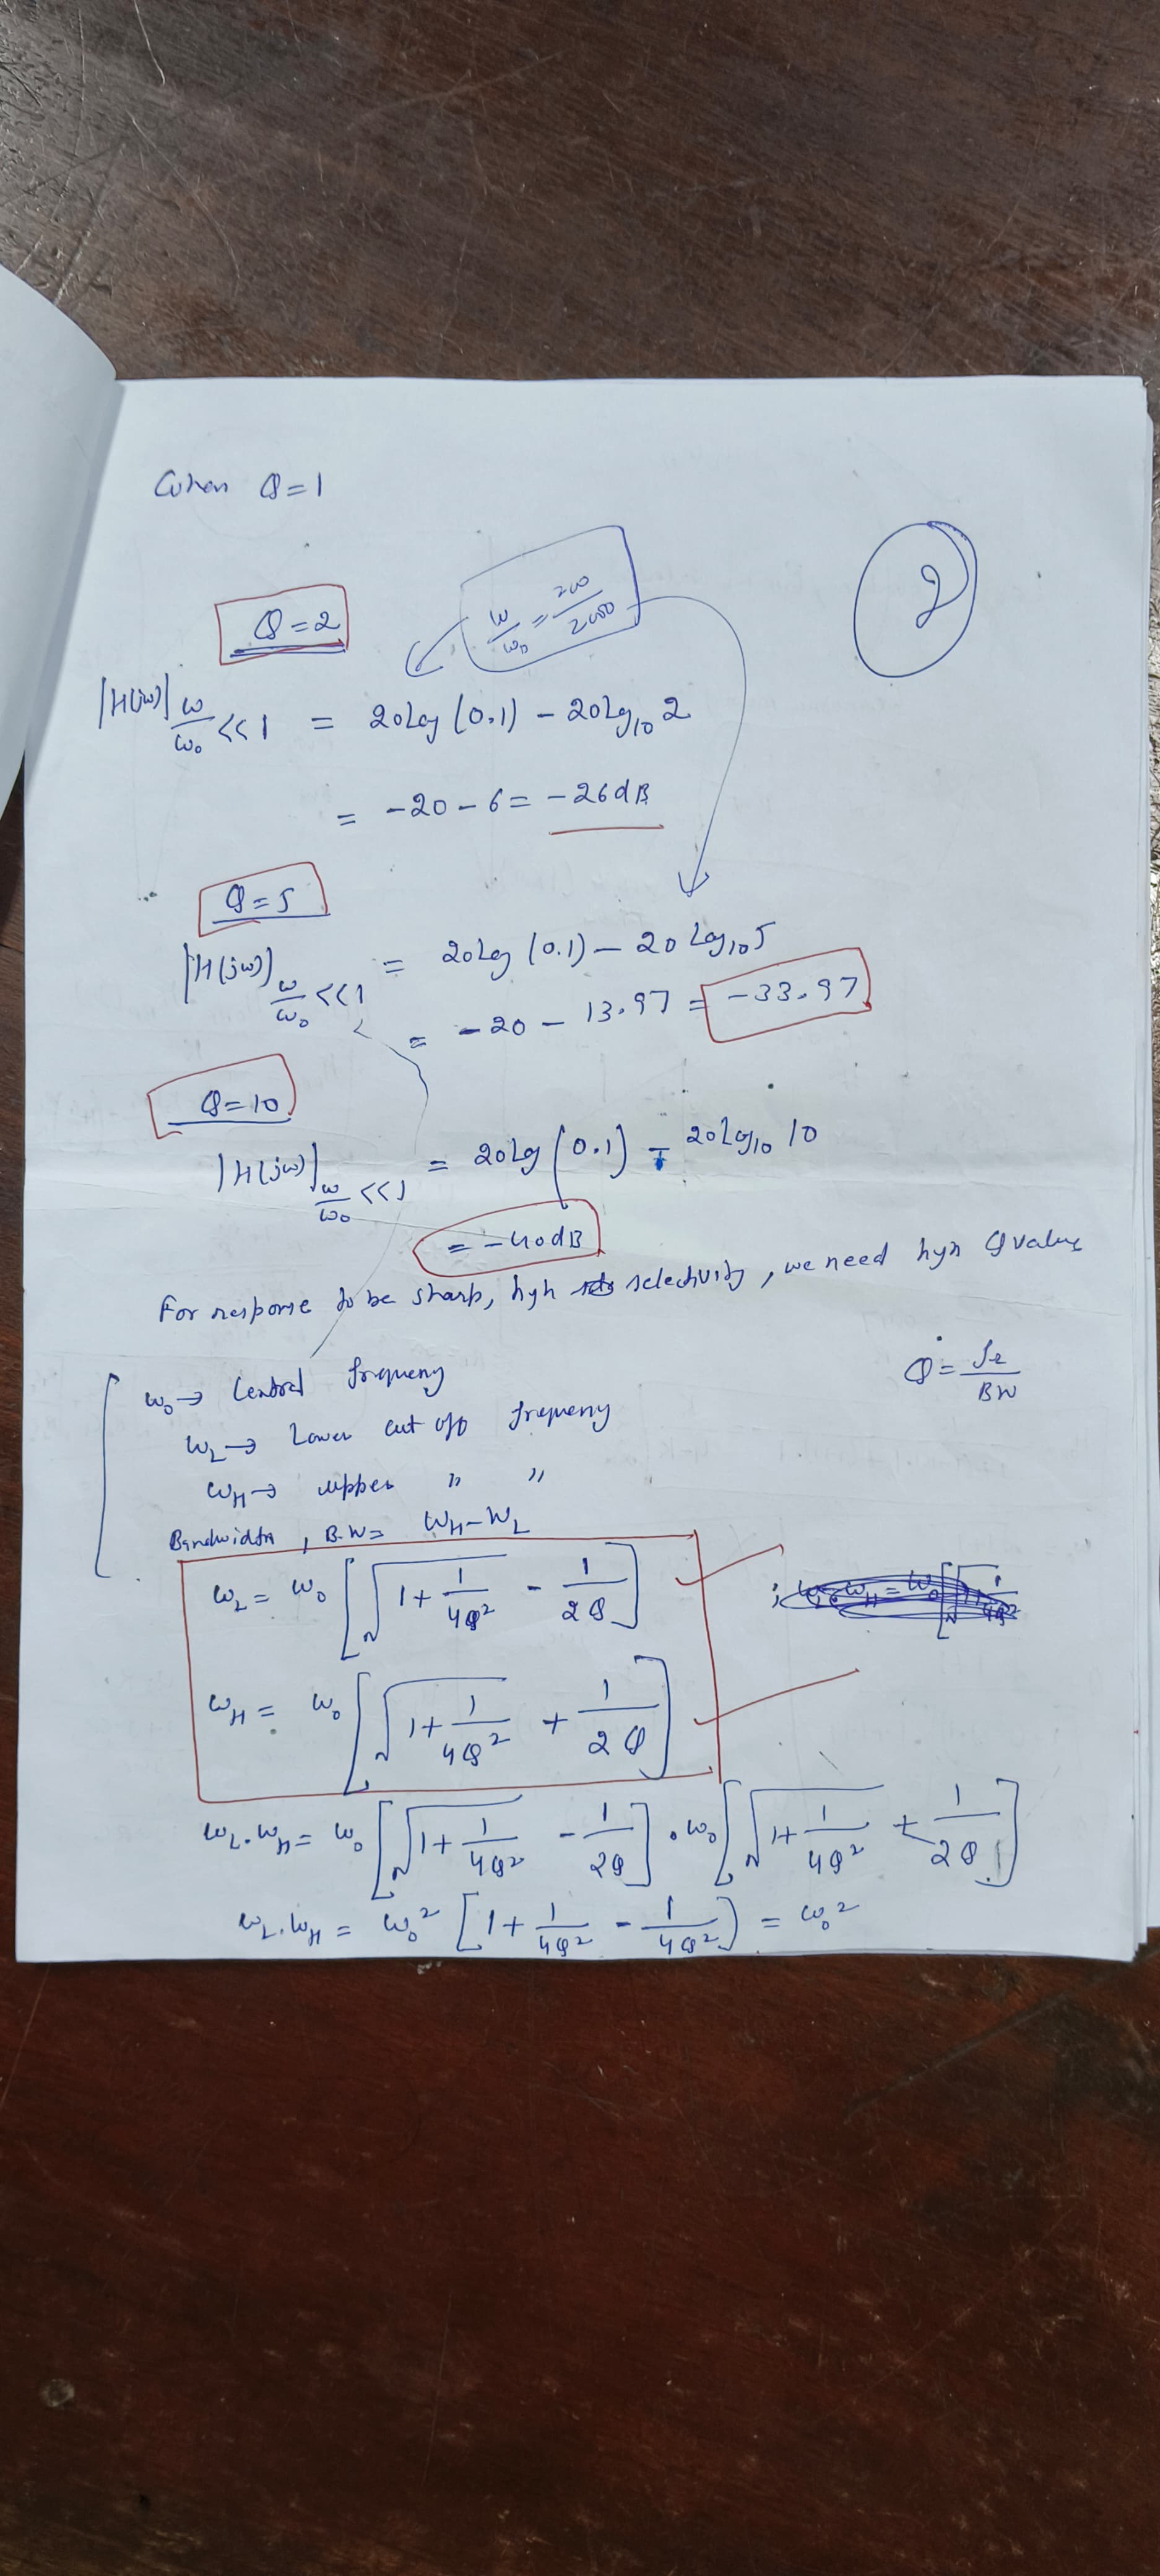 When Q = 1
2
Q = 2
ω/ω₀ = 200/2000
|H(jω)| ω/ω₀ << 1 = 20Log (0.1) − 20Log₁₀ 2
= −20 − 6 = −26dB
Q = 5
|H(jω)| ω/ω₀ << 1 = 20Log (0.1) − 20 Log₁₀ 5
= −20 − 13.97 = −33.97
Q = 10
|H(jω)| ω/ω₀ << 1 = 20Log (0.1) − 20Log₁₀ 10
= −40dB
For response to be sharp, high selectivity, we need high Q value
Q = fr/BW
ω₀ → Central frequency
ω_L → Lower cut off frequency
ω_H → upper " "
Bandwidth, B.W = ω_H − ω_L
ω_L = ω₀ [√(1 + 1/4Q²) − 1/2Q]
ω_H = ω₀ [√(1 + 1/4Q²) + 1/2Q]
ω_L.ω_H = ω₀ [√(1 + 1/4Q²) − 1/2Q] . ω₀ [√(1 + 1/4Q²) + 1/2Q]
ω_L.ω_H = ω₀² [1 + 1/4Q² − 1/4Q²] = ω₀²